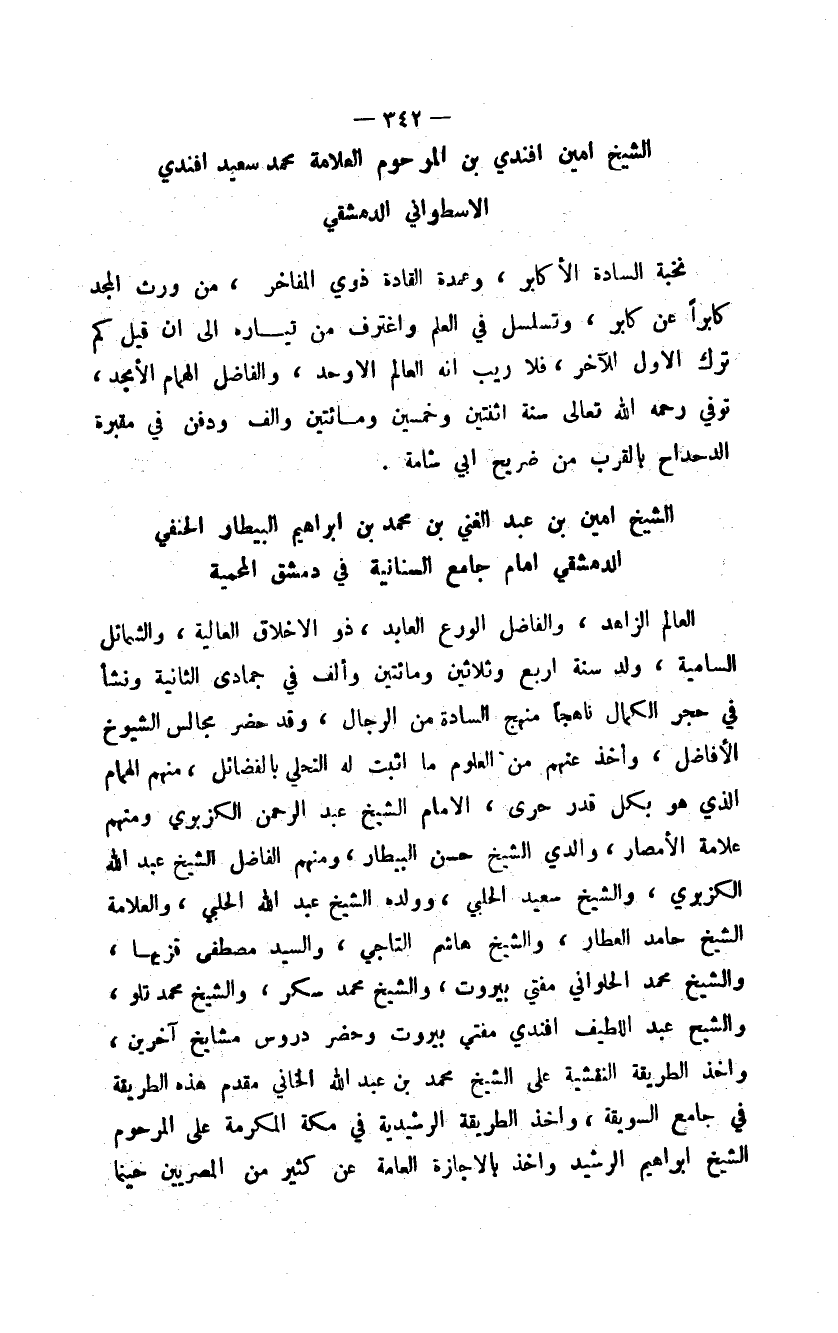 — ٣٤٢ —
الشيخ امين افندي بن المرحوم العلامة محمد سعيد افندي
الاسطواني الدمشقي
نخبة السادة الأكابر ، وعمدة القادة ذوي المفاخر ، من ورث المجد
كابراً عن كابر ، وتسلسل في العلم واغترف من تيـــاره الى ان قيل كم
ترك الاول للآخر ، فلا ريب انه العالم الاوحد ، والفاضل الهمام الأمجد ،
توفي رحمه الله تعالى سنة اثنتين وخمسين ومــائتين والف ودفن في مقبرة
الدحداح بالقرب من ضريح ابي شامة .
الشيخ امين بن عبد الغني بن محمد بن ابراهيم البيطار الحنفي
الدمشقي امام جامع السنانية في دمشق المحمية
العالم الزاهد ، والفاضل الورع العابد ، ذو الاخلاق العالية ، والشمائل
السامية ، ولد سنة اربع وثلاثين ومائتين وألف في جمادى الثانية ونشأ
في حجر الكمال ناهجاً منهج السادة من الرجال ، وقد حضر مجالس الشيوخ
الأفاضل ، وأخذ عنهم من العلوم ما اثبت له التحلي بالفضائل ، منهم الهمام
الذي هو بكل قدر حرى ، الامام الشيخ عبد الرحمن الكزبوري ومنهم
علامة الأمصار ، والدي الشيخ حسن البيطار ، ومنهم الفاضل الشيخ عبد الله
الكزبوري ، والشيخ سعيد الحلبي ، وولده الشيخ عبد الله الحلبي ، والعلامة
الشيخ حامد العطار ، والشيخ هاشم التاجي ، والسيد مصطفى قزيهـا ،
والشيخ محمد الحلواني مفتي بيروت ، والشيخ محمد سكر ، والشيخ محمد تلو ،
والشيح عبد اللطيف افندي مفتي بيروت وحضر دروس مشايخ آخرين ،
واخذ الطريقة النقشية على الشيخ محمد بن عبد الله الخاني مقدم هذه الطريقة
في جامع السويقة ، واخذ الطريقة الرشيدية في مكة المكرمة على المرحوم
الشيخ ابراهيم الرشيد واخذ بالاجازة العامة عن كثير من المصريين حينما